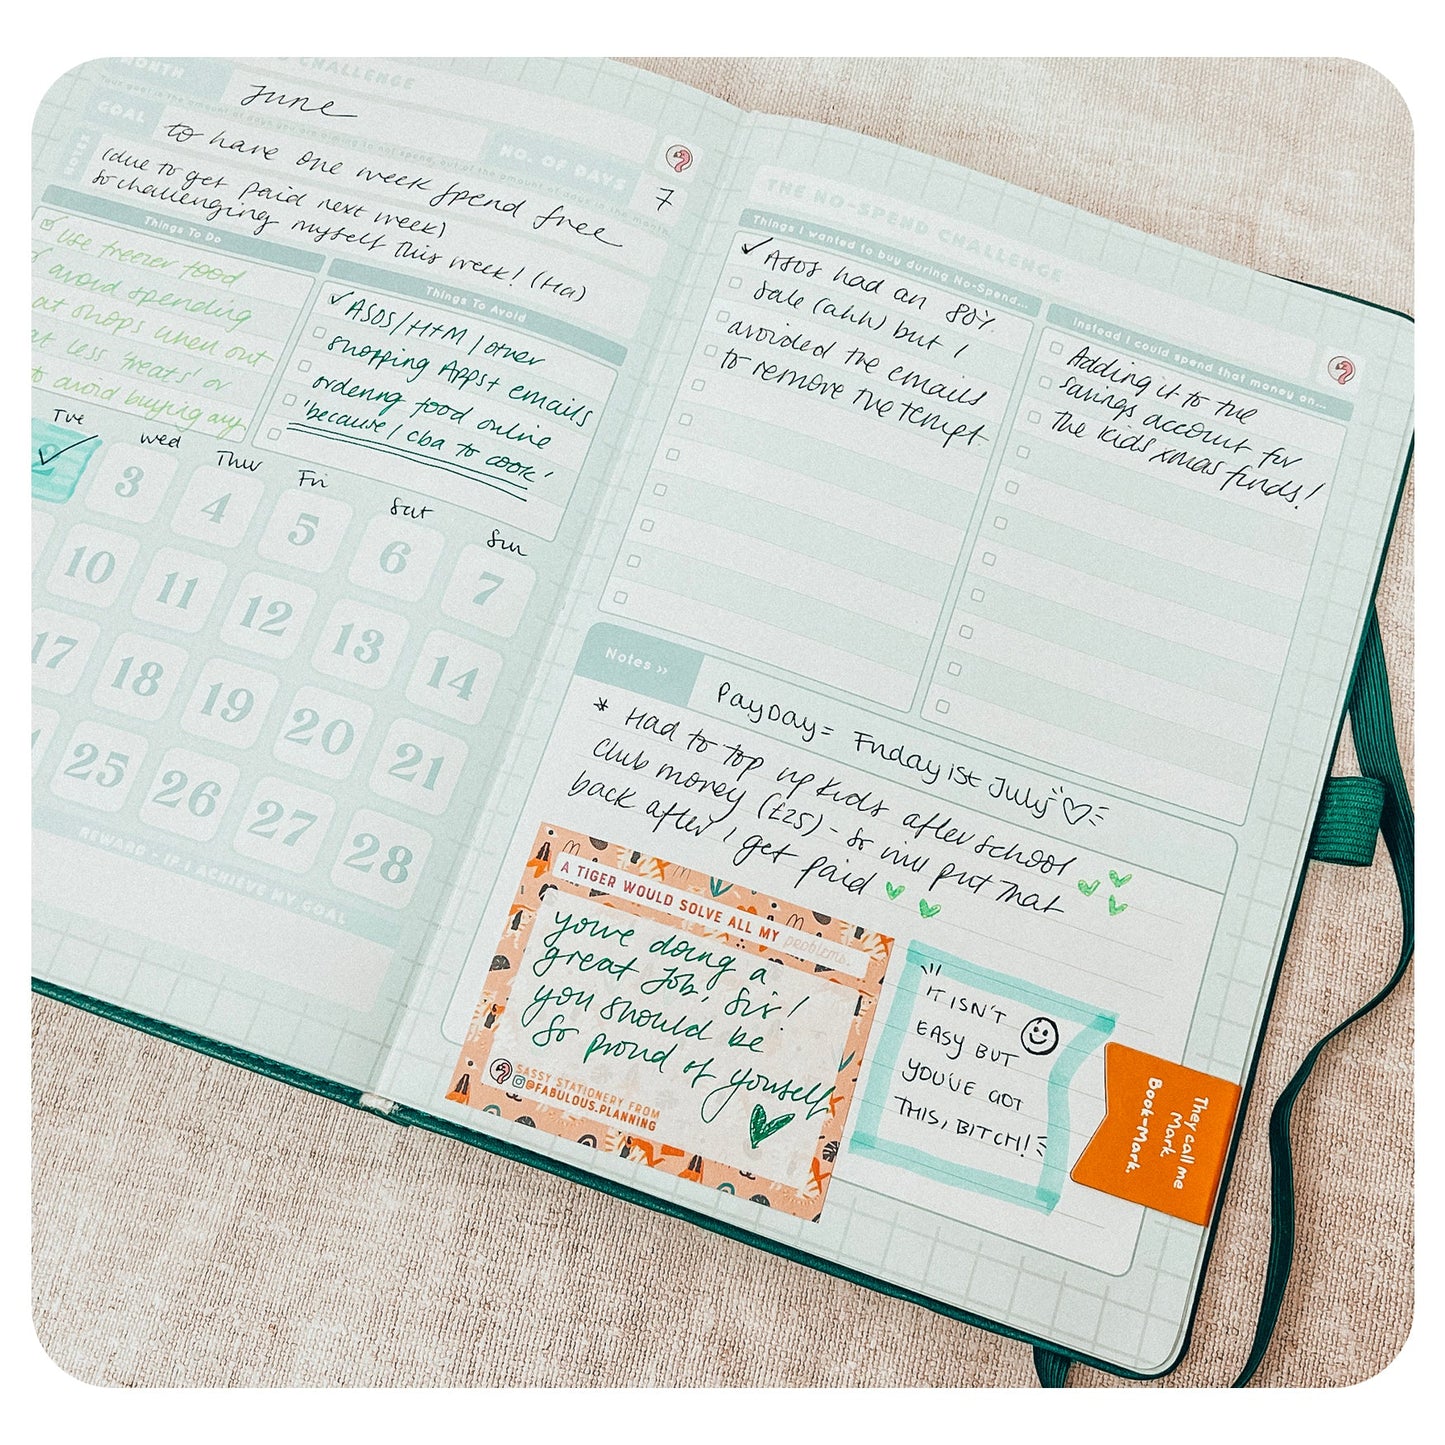 MONTH
CHALLENGE
June
Your goal is the amount of days you are aiming to not spend, out of the amount of days in the month
GOAL
NO. OF DAYS
to have one week spend free
7
NOTES
(due to get paid next week)
so challenging myself this week! (Ha)
Things To Do
Use freezer food
avoid spending
at shops when out
at less 'treats' or
to avoid buying any
Things To Avoid
ASOS/H+M/other
shopping Apps + emails
ordering food online
'because I cba to cook'
Tue
Wed
Thur
Fri
Sat
Sun
2 3 4 5 6 7
10 11 12 13 14
17 18 19 20 21
25 26 27 28
REWARD IF I ACHIEVE MY GOAL
THE NO-SPEND CHALLENGE
Things I wanted to buy during No-Spend...
ASOS had an 80%
sale (ahh) but I
avoided the emails
to remove the tempt
Instead I could spend that money on...
Adding it to the
savings account for
the kids xmas funds!
Notes >>
PayDay = Friday 1st July
* Had to top up kids after school
club money (£25) - so will put that
back after I get paid
A TIGER WOULD SOLVE ALL MY problems.
you're doing a
great job, sir!
you should be
so proud of yourself
SASSY STATIONERY FROM
@FABULOUS.PLANNING
IT ISN'T
EASY BUT
YOU'VE GOT
THIS, BITCH!
They call me
Mark.
Book-Mark.